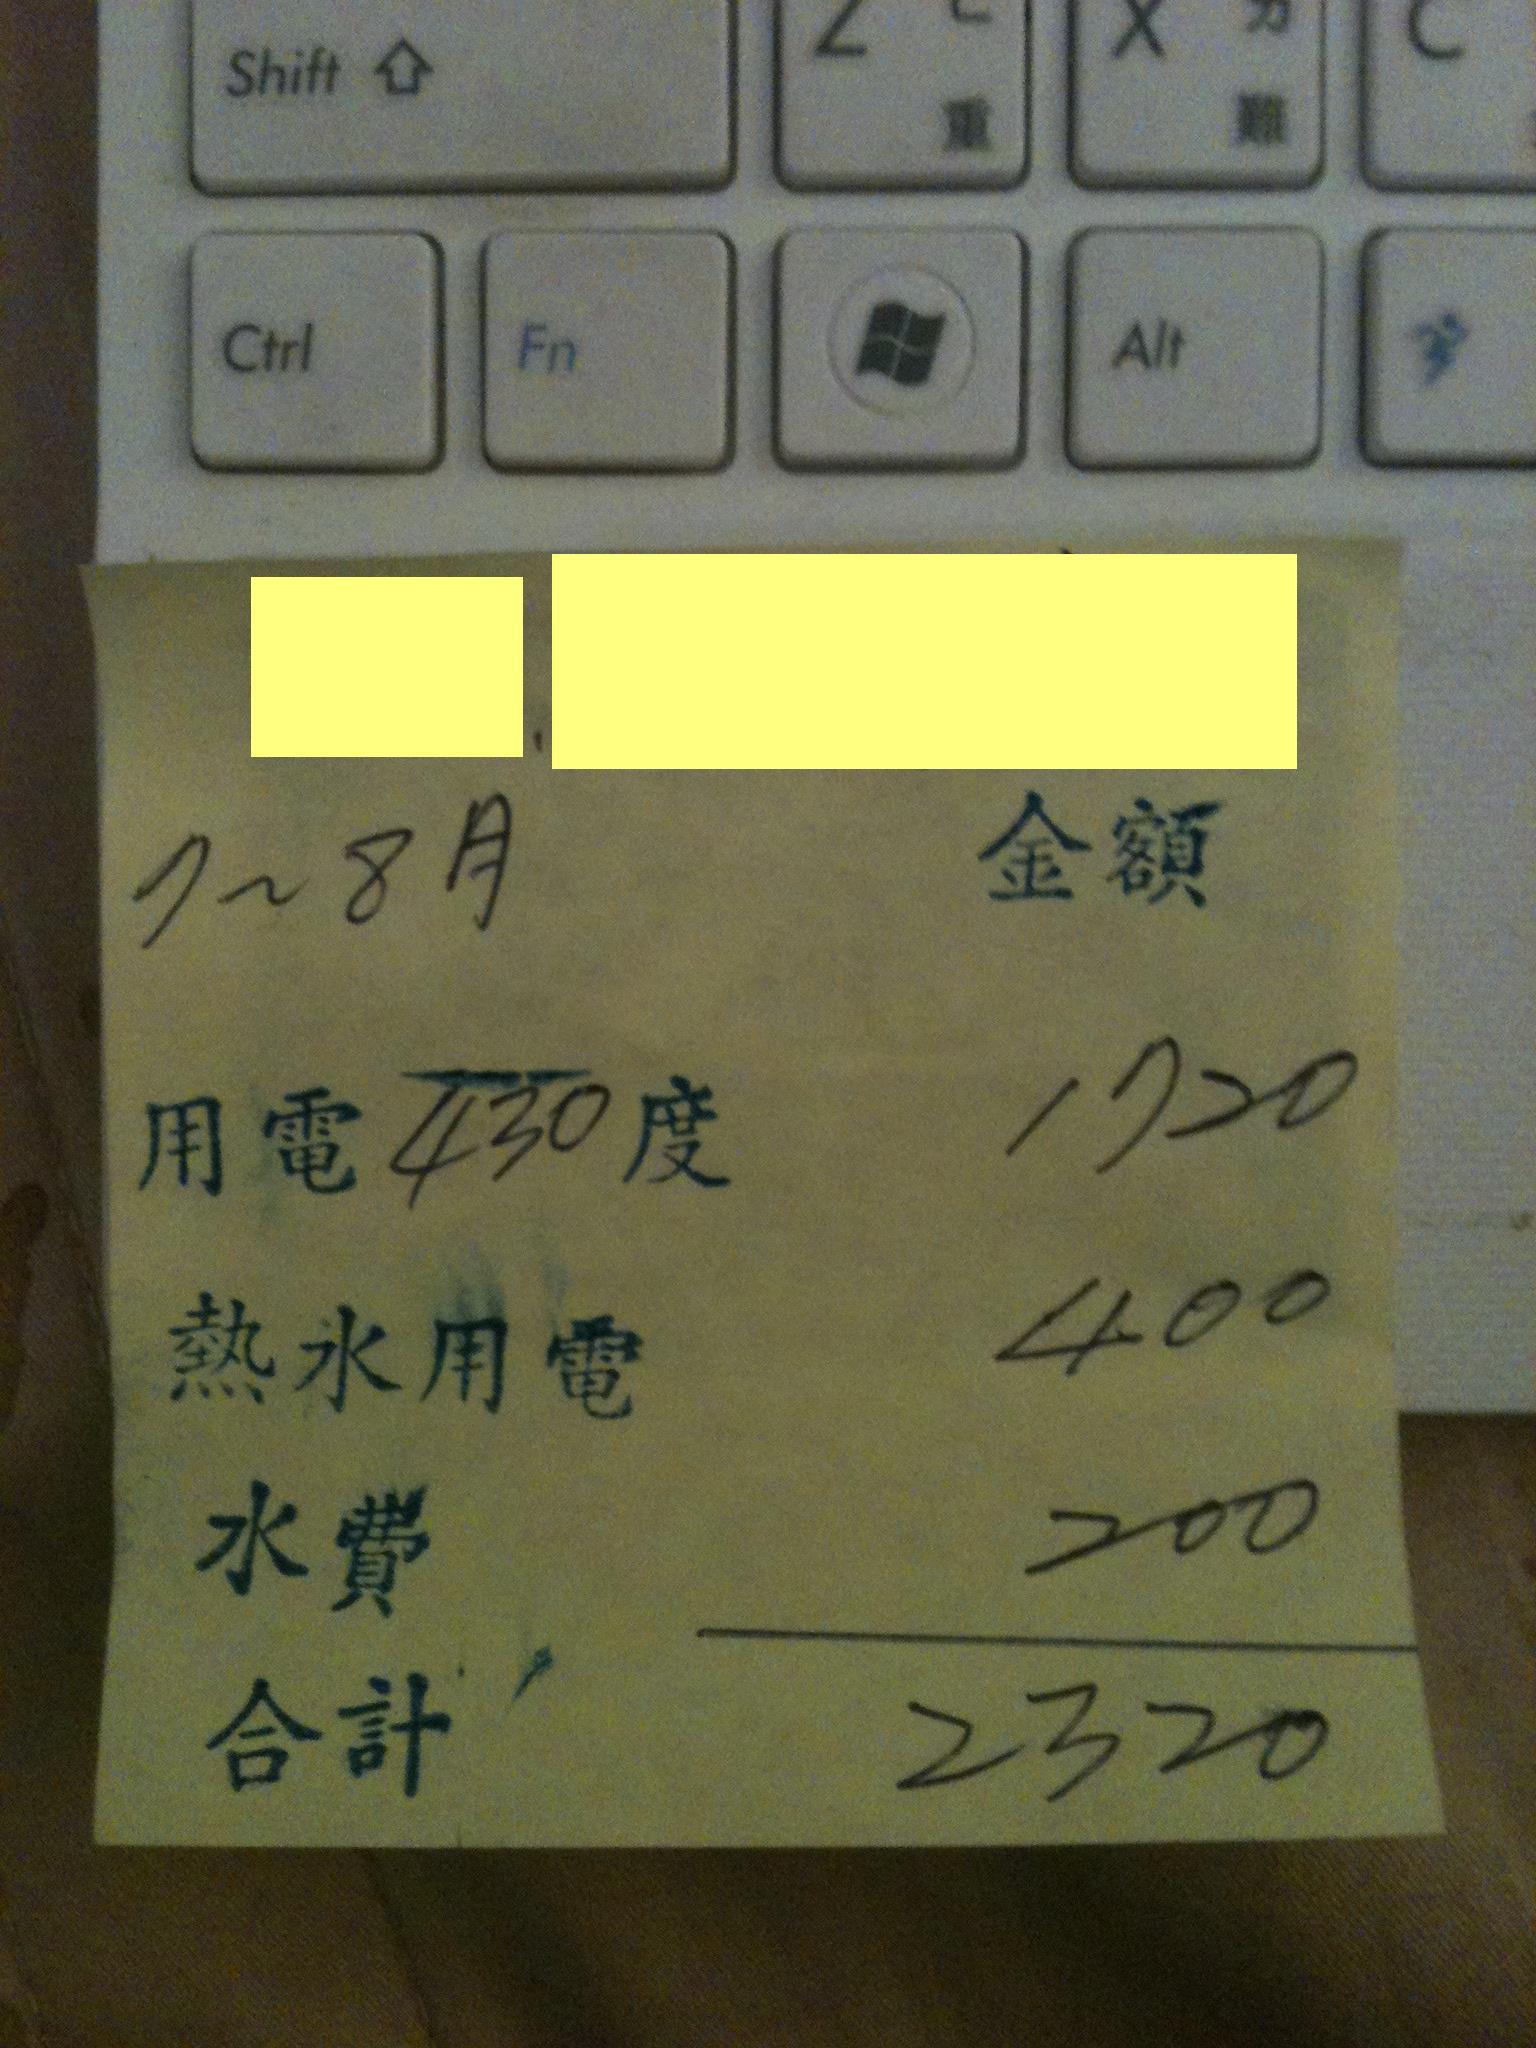 Shift Z ㄈ 重 X ㄌ 難 C
Ctrl Fn Alt
7~8月 金額
用電430度 1720
熱水用電 400
水費 200
合計 2320